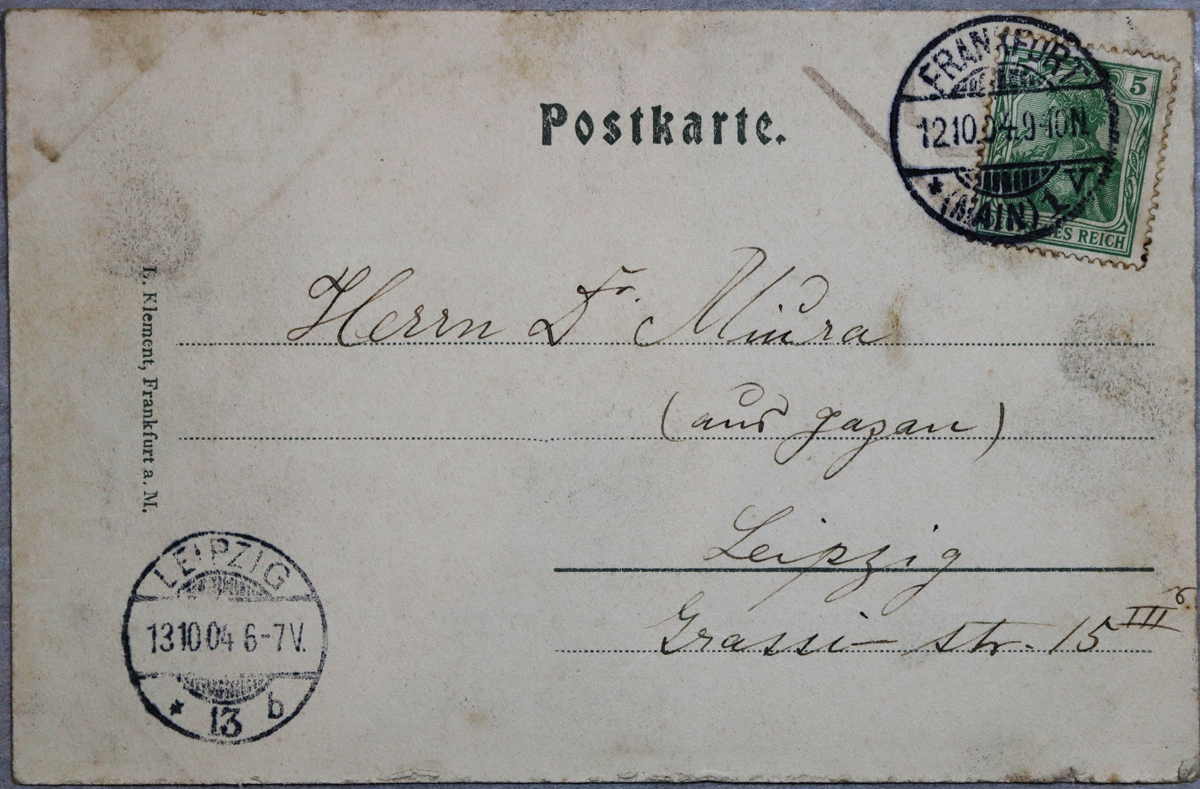 Postkarte.
FRANKFURT
12.10.04.9-10N.
* (MAIN) 1 V
5
ES REICH
Herrn Dr. Miura
(aus Japan)
Leipzig
Grassi-str. 15 III r
L. Klement, Frankfurt a. M.
LEIPZIG
13 10 04 6-7V.
* 13 b